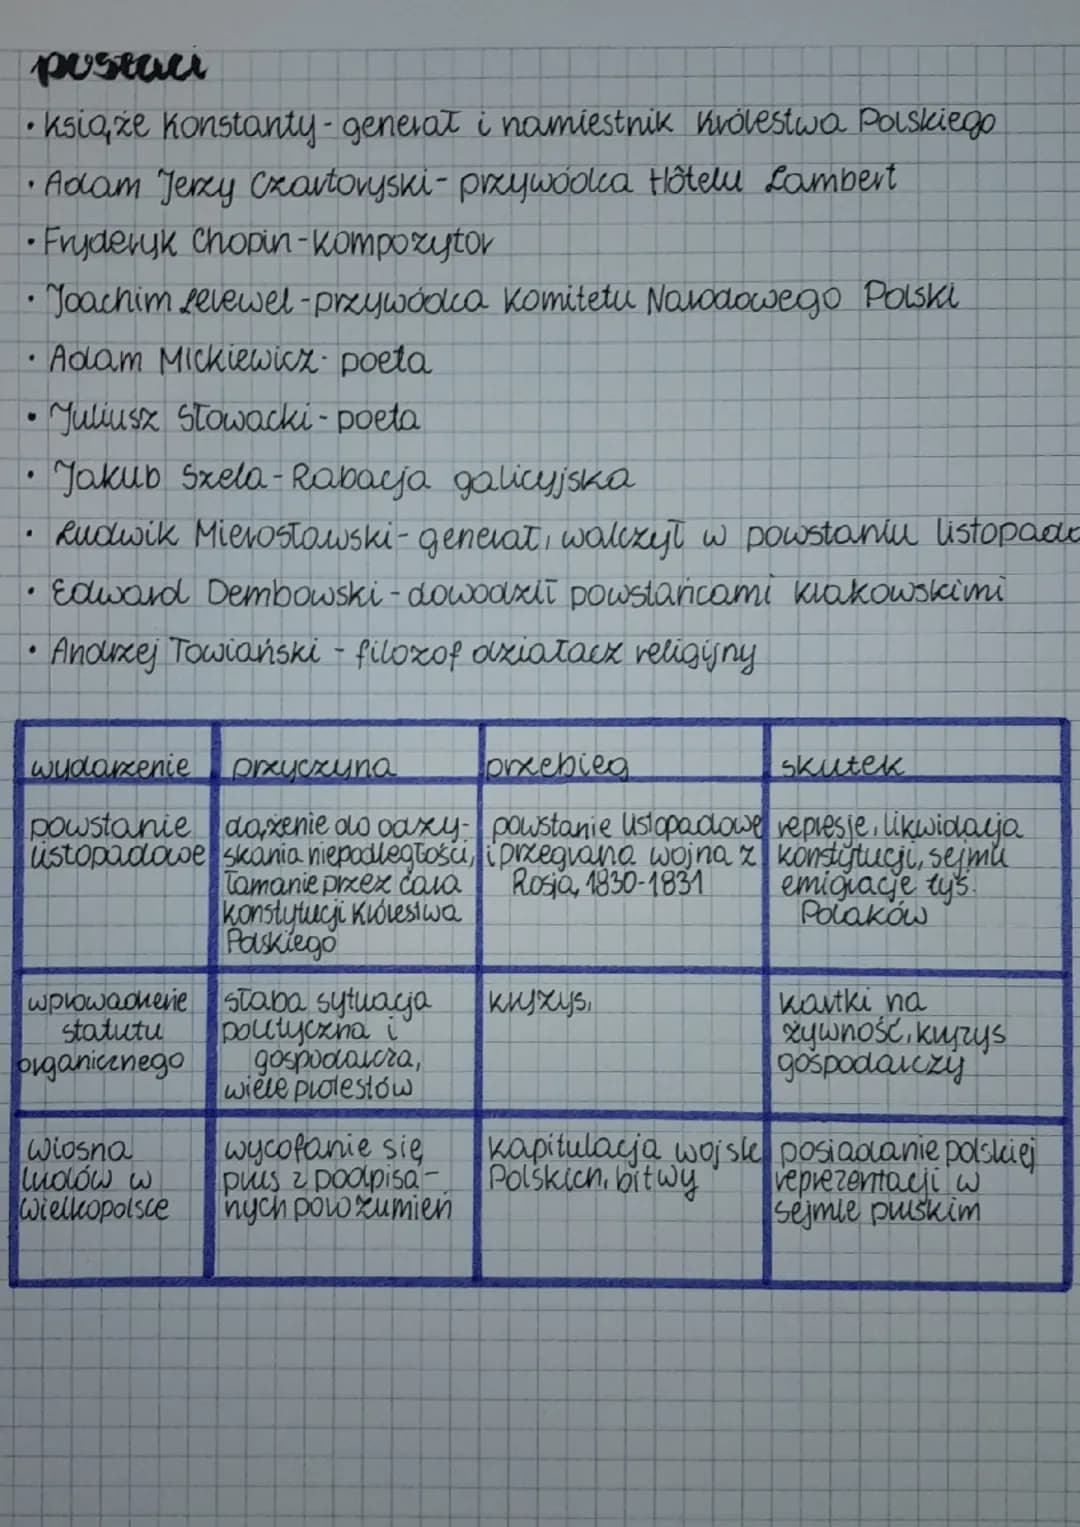 postaci
• Książe Konstanty - generał i namiestnik Królestwa Polskiego
• Adam Jerzy Czartoryski - przywódca Hôtelu Lambert
• Fryderyk Chopin - kompozytor
• Joachim Lelewel - przywódca Komitetu Narodowego Polski
• Adam Mickiewicz - poeta
• Juliusz Słowacki - poeta
• Jakub Szela - Rabacja galicyjska
• Ludwik Mierosławski - generał, walczył w powstaniu listopado
• Edward Dembowski - dowodził powstańcami krakowskimi
• Andrzej Towiański - filozof działacz religijny
wydarzenie
przyczyna
przebieg
skutek
powstanie
listopadowe
dążenie do odzy-
skania niepodległości,
łamanie przez cara
konstytucji Królestwa
Polskiego
powstanie listopadowe
i przegrana wojna z
Rosją, 1830-1831
represje, likwidacja
konstytucji, sejmu
emigracje tyś.
Polaków
wprowadzenie
statutu
organicznego
słaba sytuacja
polityczna i
gospodarcza,
wiele protestów
kryzys,
kartki na
żywność, kryzys
gospodarczy
wiosna
ludów w
wielkopolsce
wycofanie się
prus z podpisa-
nych porozumień
kapitulacja wojsk
Polskich, bitwy
posiadanie polskiej
reprezentacji w
sejmie pruskim